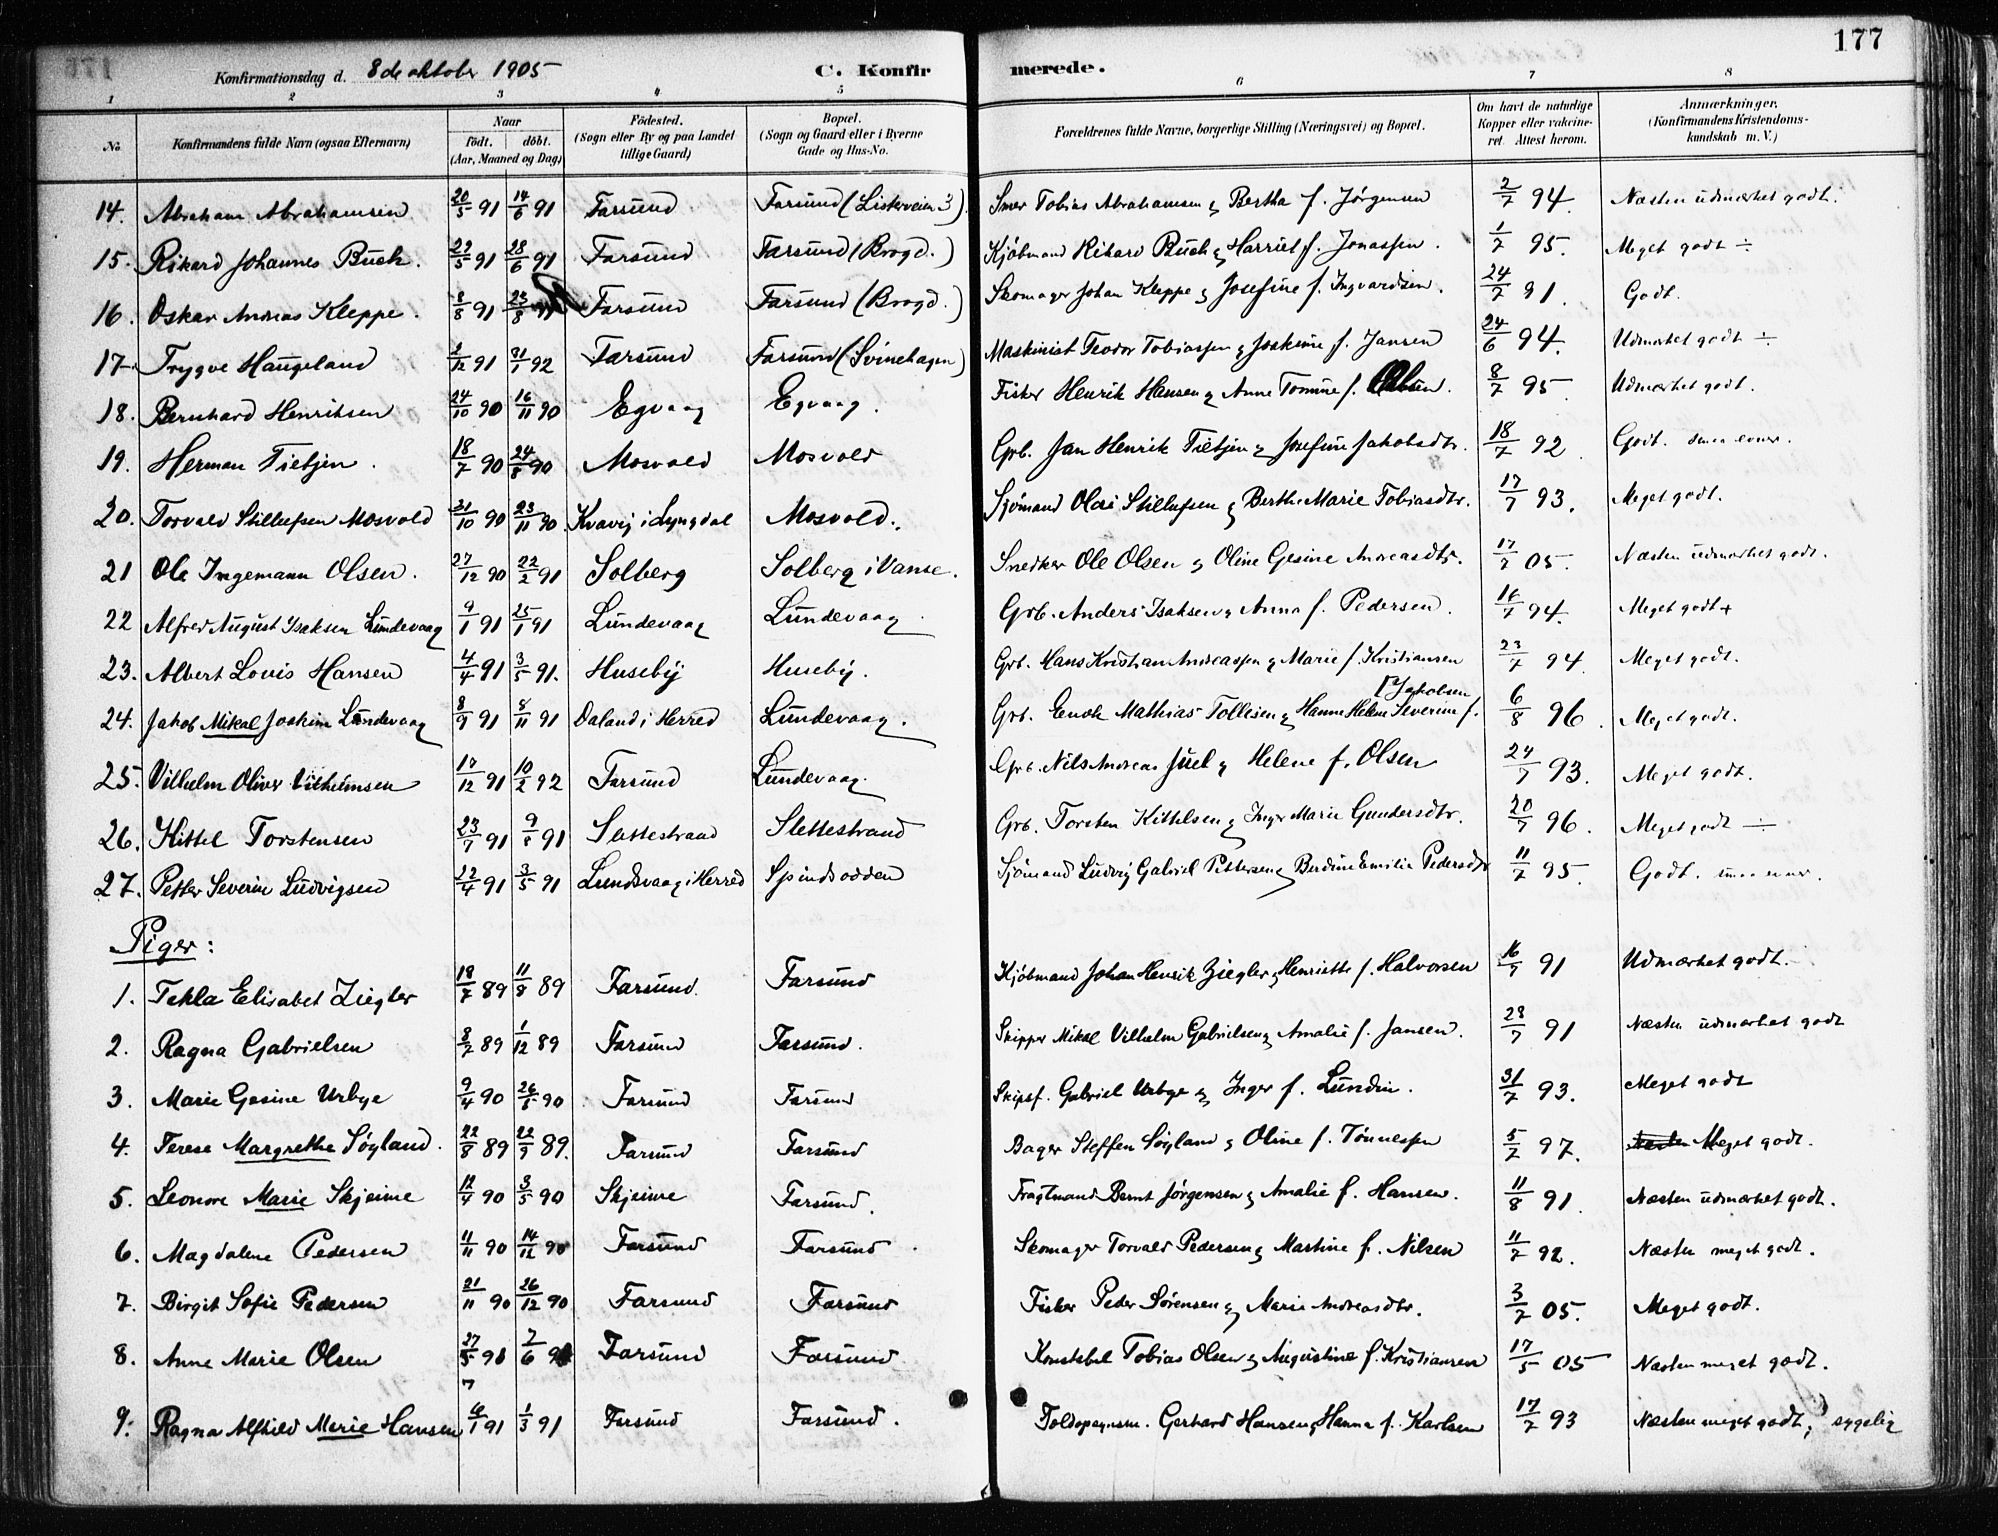 177
Konfirmationsdag d. 8de oktober 1905 C. Konfirmerede.
1 2 3 4 5 6 7 8
No. Konfirmandens fulde Navn (ogsaa Efternavn) Naar født. døbt. (Aar, Maaned og Dag) Fødested. (Sogn eller By og paa Landet tillige Gaard) Bopæl. (Sogn og Gaard eller i Byerne Gade og Hus-No. Forældrenes fulde Navne, borgerlige Stilling (Næringsvei) og Bopæl. Om havt de naturlige Kopper eller vakcineret. Attest herom. Anmærkninger. (Konfirmandens Kristendomskundskab m. V.)
14. Abraham Abrahamsen 20/5 91 14/6 91 Farsund Farsund (Listerveien 3). Smed Tobias Abrahamsen & Bertha f. Jørgensen 2/7 94. Næsten udmærket godt.
15. Rikard Johannes Buch. 22/5 91 28/6 91 Farsund Farsund (Brogd.) Kjøbmand Rikard Buch & Harriet f. Jonassen. 1/7 95. Meget godt ÷
16. Oskar Andreas Kleppe. 8/8 91 23/8 91 Farsund Farsund (Brogd.) Skomager Johan Kleppe & Josefine f. Ingvardsen. 24/7 91. Godt.
17. Trygve Haugeland 2/12 91 31/1 92 Farsund Farsund (Svinehagen) Maskinist Teodor Tobiassen & Joakime f. Jansen 24/6 94. Udmærket godt ÷
18. Bernhard Henriksen 24/10 90 16/11 90 Egvaag Egvaag. Fisker Henrik Hansen & Anne Tomine f. Olsen. 8/7 95 Udmærket godt.
19. Herman Tietjen. 18/7 90 24/8 90 Mosvold Mosvold Grb. Jan Henrik Tietjen & Josefine Jakobsdtr. 18/7 92. Godt. smaa evner.
20. Torvald Stillufsen Mosvold 31/10 90 23/11 90. Kvavig i Lyngdal Mosvold. Sjømand Olai Stillufsen & Berthe Marie Tobiasdtr. 17/7 93. Meget godt.
21 Ole Ingemann Olsen. 27/12 90 22/2 91 Solberg Solberg i Vanse. Snedker Ole Olsen & Oline Gesine Andreasdtr. 17/7 05. Næsten udmærket godt.
22 Alfred August Isaksen Lundevaag 9/1 91 25/1 91 Lundevaag Lundevaag. Grb. Anders Isaksen & Anna f. Pedersen. 16/7 94. Meget godt +
23. Albert Lovis Hansen 4/4 91 3/5 91. Huseby Huseby. Grb. Hans Kristian Andreassen & Marie f. Kristiansen 23/7 94. Meget godt.
24. Jakob Mikal Joakim Lundevaag 8/9 91 8/11 91 Daland i Herred Lundevaag. Grb. Enok Mathias Tollisen & Hanne Helene Severine f. [Jakobsen 6/8 96. Meget godt.
25. Vilhelm Oliver Vilhelmsen 17/12 91 10/2 92 Farsund Lundevaag. Grb. Nils Andreas Juel & Helene f. Olsen 24/7 93. Meget godt.
26. Kittel Torstensen 23/7 91 9/8 91 Slettestrand Slettestrand Grb. Torsten Kittelsen & Inger Marie Gundersdtr. 20/7 96. Meget godt ÷
27. Petter Severin Ludvigsen 22/4 91 3/5 91 Lundevaag i Herred Spindsodden Sjømand Ludvig Gabriel Pettersen & Berdine Emilie Pedersdtr 11/7 95. Godt. smaa evner.
Piger:
1. Tekla Elisabet Ziegler 18/7 89 11/8 89 Farsund. Farsund Kjøbmand Johan Henrik Ziegler & Henriette f. Halvorsen 16/7 91 Udmærket godt.
2. Ragna Gabrielsen 8/7 89 1/12 89 Farsund Farsund. Skipper Mikal Vilhelm Gabrielsen & Amalie f. Jansen. 28/7 91 Næsten udmærket godt
3. Marie Gesine Urbye 9/4 90 26/5 90 Farsund Farsund Skipsf. Gabriel Urbye & Inger f. Lundin. 31/7 93. Meget godt
4. Terese Margrethe Søyland. 22/8 89 22/9 89. Farsund Farsund Bager Steffen Søyland & Oline f. Tønnessen 5/7 97. Meget godt.
5. Leonore Marie Skjeime 12/4 90 3/5 90 Skjeime Farsund. Fragtmand Bernt Jørgensen & Amalie f. Hansen. 11/8 91. Næsten udmærket godt.
6. Magdalene Pedersen 11/11 90 14/12 90 Farsund Farsund. Skomager Torvald Pedersen & Martine f. Nilsen 11/7 92. Næsten meget godt.
7. Birgit Sofie Pedersen 21/11 90 26/12 90 Farsund Farsund Fisker Peder Sørensen & Marie Andreasdtr. 3/7 05. Meget godt.
8. Anne Marie Olsen 27/5 91 7/6 91 Farsund Farsund. Konstabel Tobias Olsen & Augustine f. Kristiansen 17/5 05 Næsten meget godt.
9. Ragna Alfhild Marie Hansen 6/1 91 1/3 91 Farsund Farsund. Toldopsynsm. Gerhard Hansen & Hanna f. Karlsen 17/7 93 Næsten meget godt; sygelig